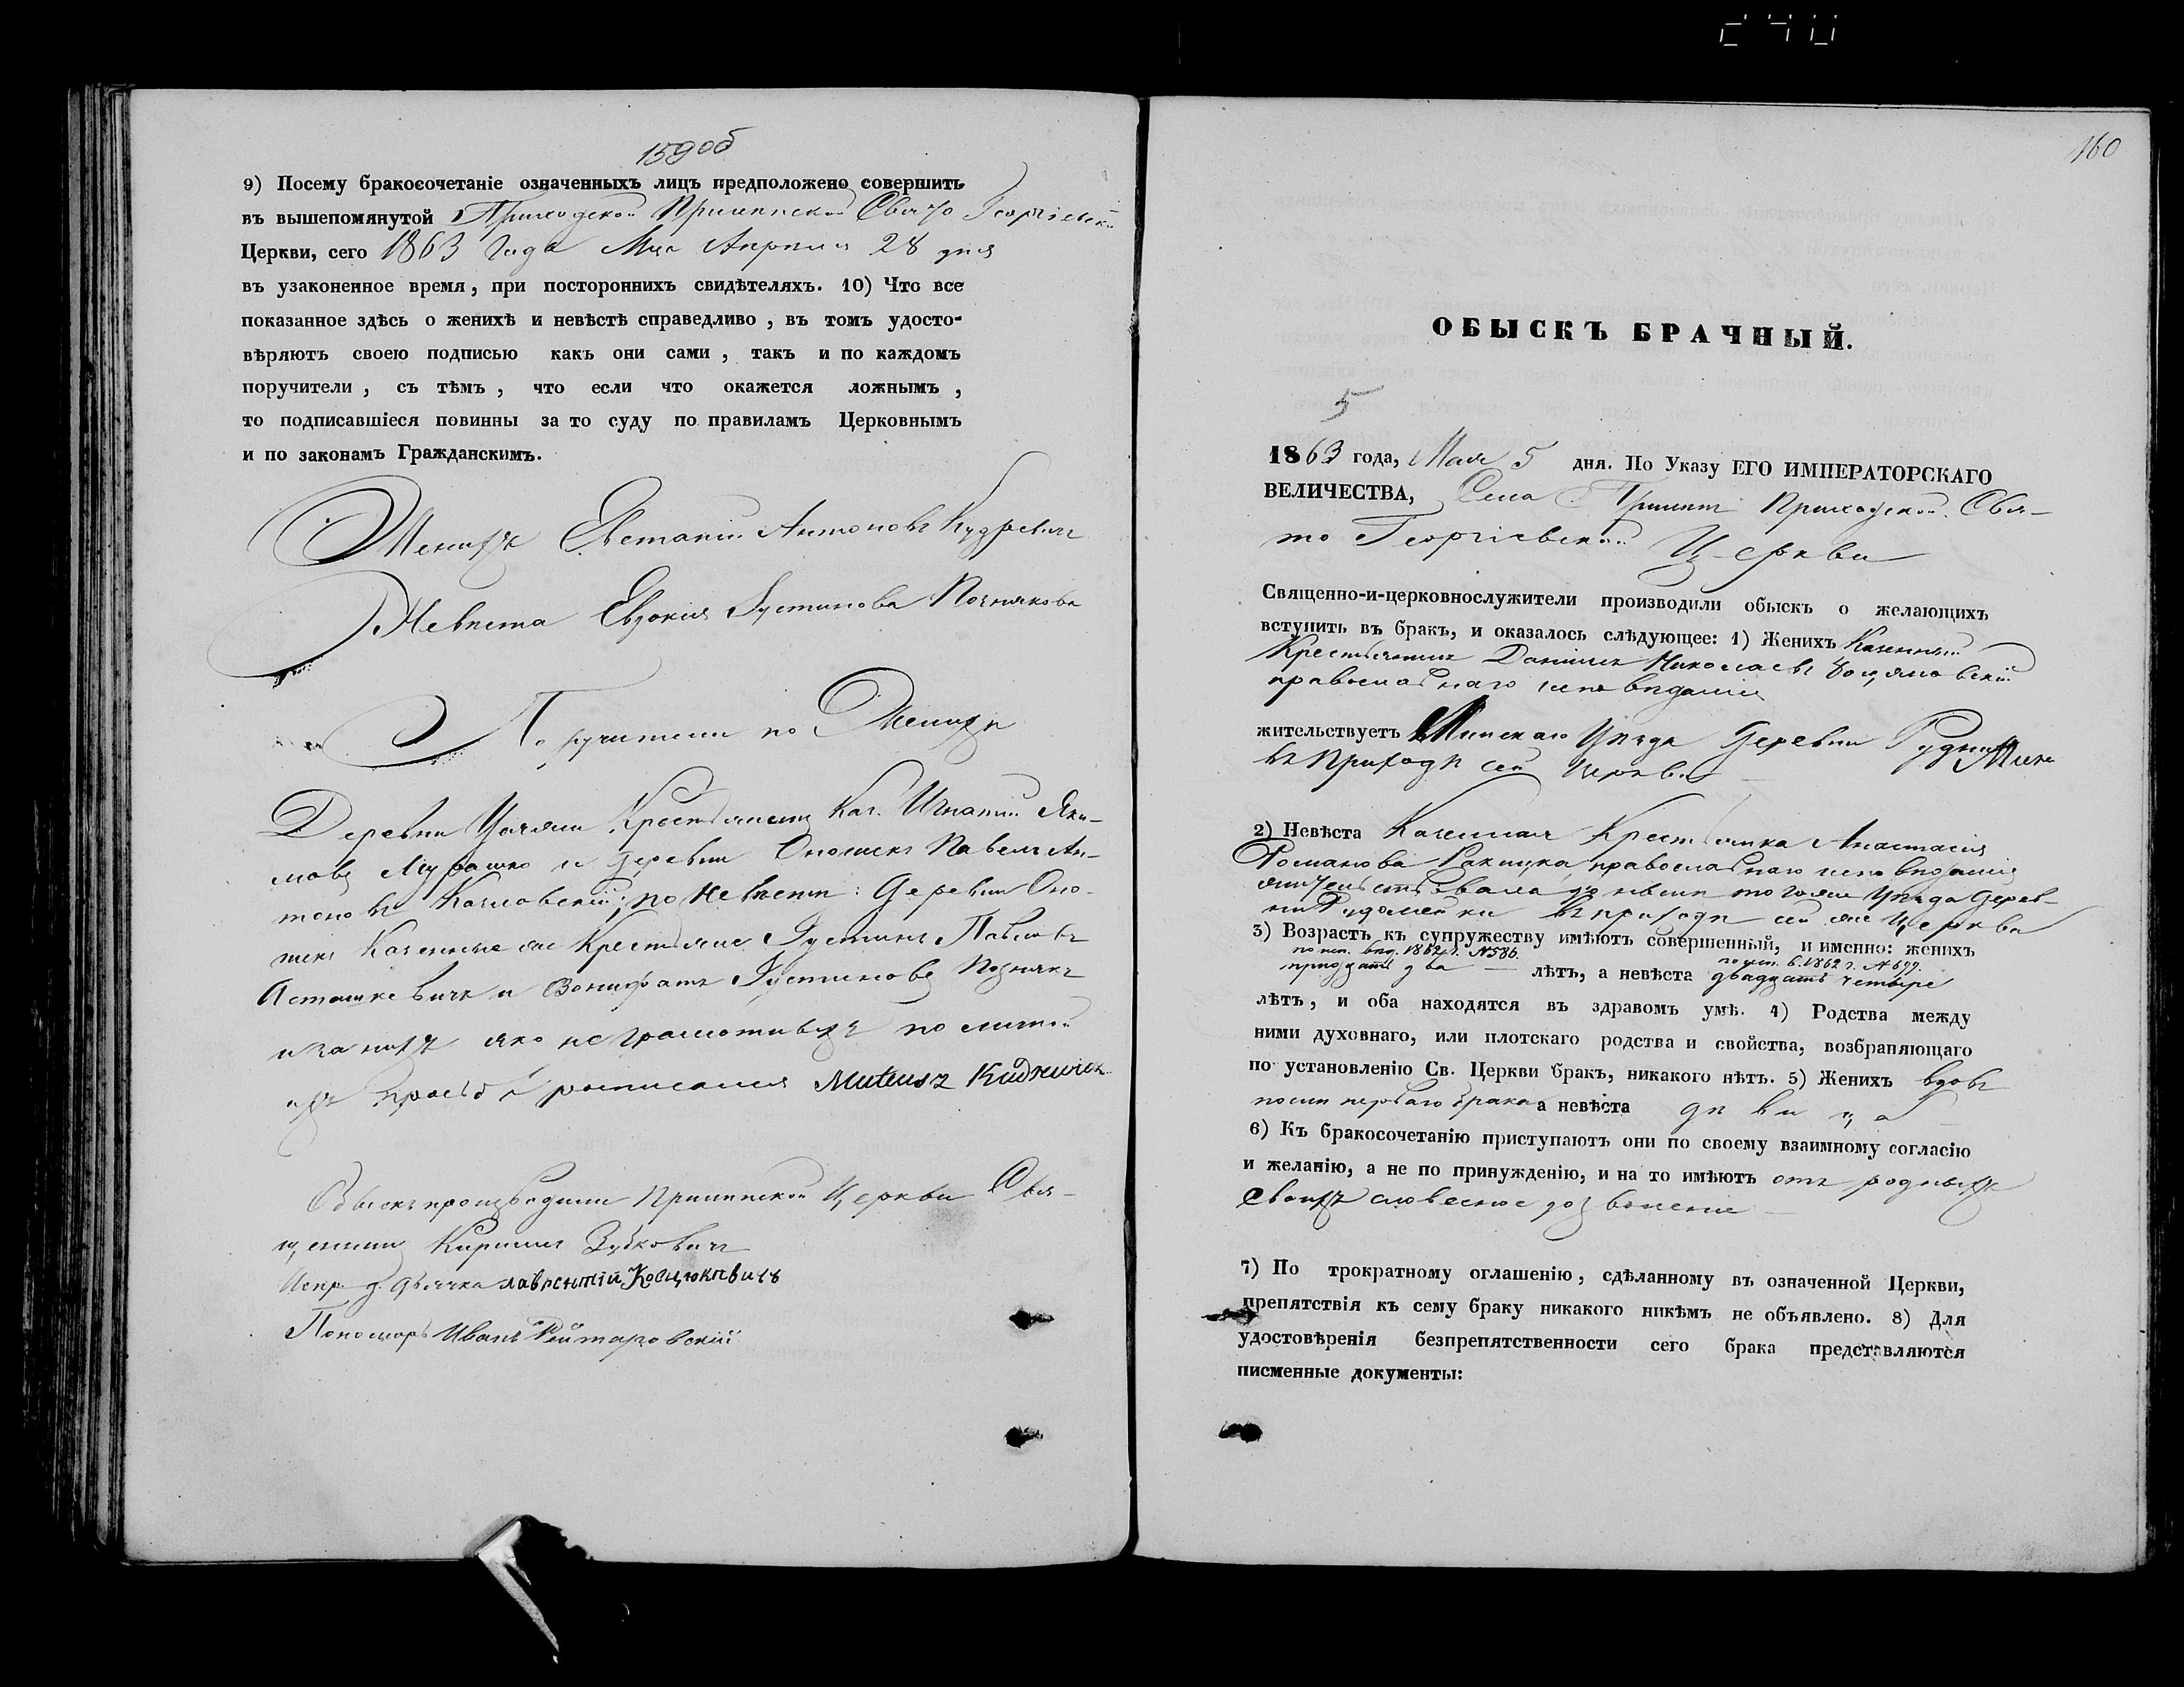 159об
9) Посему бракосочетаніе означенныхъ лицъ предположено совершить
въ вышепомянутой Приходской Свято Георгіевской
Церкви, сего 1863 года Мца Апрѣля 28 дня
въ узаконенное время, при постороннихъ свидѣтеляхъ. 10) Что все
показанное здѣсь о женихѣ и невѣстѣ справедливо, въ томъ удосто-
вѣряютъ своею подписью какъ они сами, такъ и по каждомъ
поручители, съ тѣмъ, что если что окажется ложнымъ,
то подписавшіеся повинны за то суду по правиламъ Церковнымъ
и по законамъ Гражданскимъ.
Женихъ Евстафій Антоновъ Кудревичъ
Невѣста Евдокія Іустинова Познякова
Поручители по Женихѣ
Деревни Крестьянинъ Каз. Игнатій Яки-
мовъ Мурашко и деревни Павелъ Ан-
тоновъ Козловскій; по Невѣстѣ: Деревни Оно-
шекъ Казенные же Крестьяне Іустинъ Павловъ
Асташкевичъ и Вонифатъ Іустиновъ Познякъ
а за нихъ яко неграмотныхъ по личной
ихъ прозьбѣ росписался Mateusz Kudrewicz
Обыскъ производили Церкви Свя-
щенникъ Кириллъ Зубковичъ
Испр. д. дьячка Лаврентій Косцюкевичъ
Пономарь Иванъ Рейтаровскій
160
ОБЫСКЪ БРАЧНЫЙ.
5
1863 года, Мая 5 дня. По Указу ЕГО ИМПЕРАТОРСКАГО
ВЕЛИЧЕСТВА, Села Приходской Свя-
то Георгіевской Церкви
Священно-и-церковнослужители производили обыскъ о желающихъ
вступить въ бракъ, и оказалось слѣдующее: 1) Женихъ Казенный
Крестьянинъ Даніилъ Николаевъ
православнаго исповѣданія
жительствуетъ Минскаго Уѣзда Деревни
въ Приходѣ сей Церкви
2) Невѣста Казенная Крестьянка Анастасія
Романова православнаго исповѣданія
жительствовала до нынѣ того же Уѣзда Дерев-
ни въ приходѣ сей же Церкви
3) Возрастъ къ супружеству имѣютъ совершенный, и именно: женихъ
по исп. вѣд. 1862 г. №586. по исп. в. 1862 г. №699.
тридцать два лѣтъ, а невѣста двадцать четыре
лѣтъ, и оба находятся въ здравомъ умѣ. 4) Родства между
ними духовнаго, или плотскаго родства и свойства, возбраняющаго
по установленію Св. Церкви бракъ, никакого нѣтъ. 5) Женихъ вдовъ
послѣ перваго брака а невѣста дѣвица
6) Къ бракосочетанію приступаютъ они по своему взаимному согласію
и желанію, а не по принужденію, и на то имѣютъ отъ родныхъ
своихъ словесное дозволеніе
7) По трократному оглашенію, сдѣланному въ означенной Церкви,
препятствія къ сему браку никакого никѣмъ не объявлено. 8) Для
удостовѣренія безпрепятственности сего брака представляются
писменные документы: